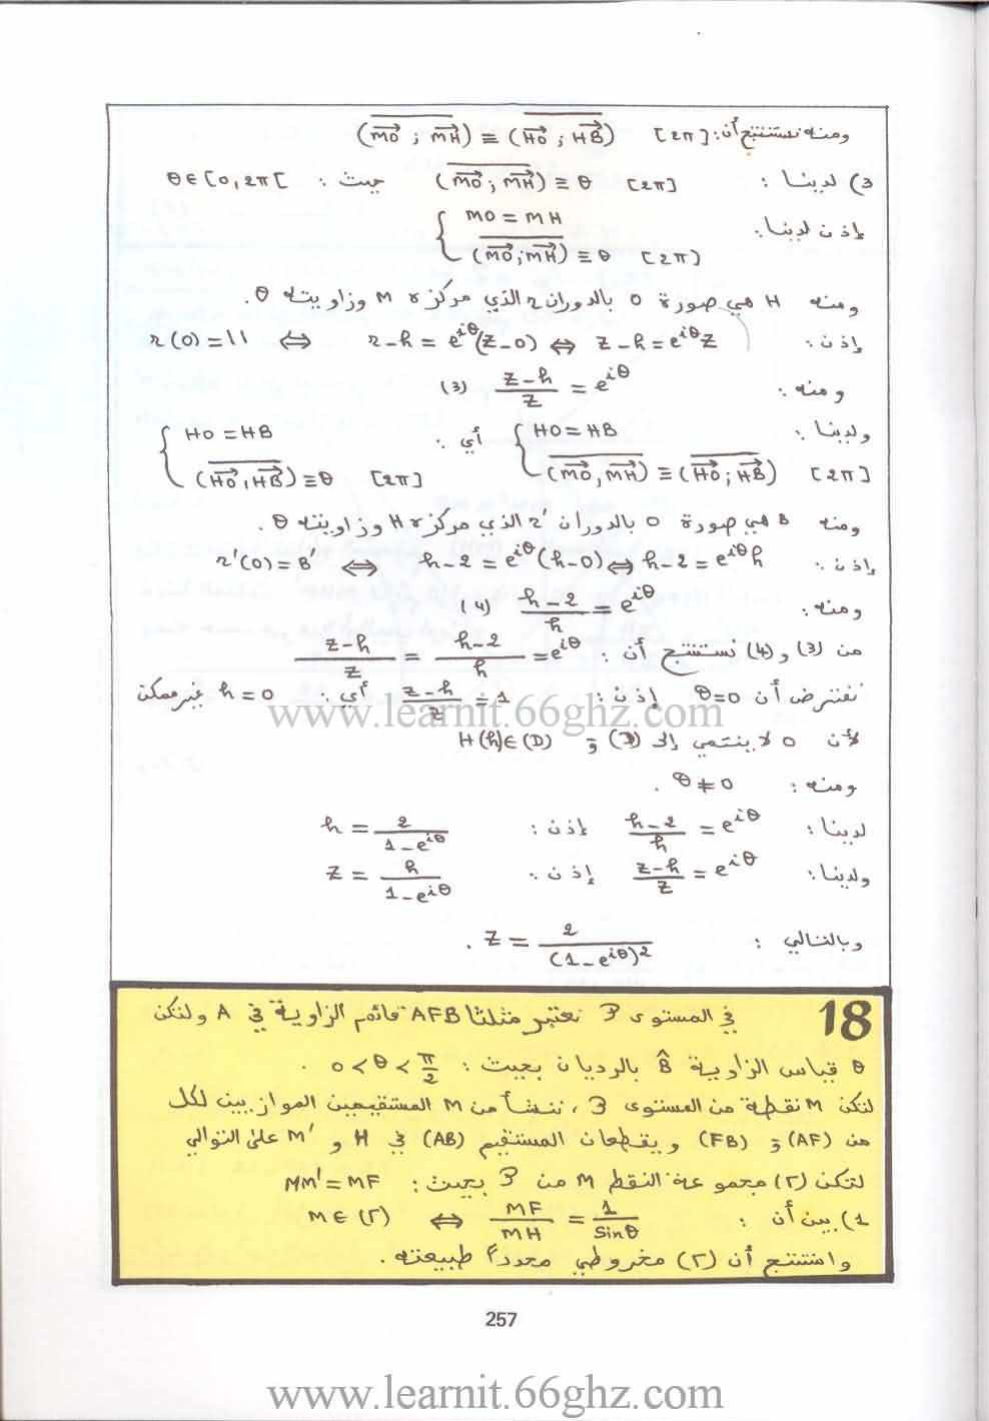 ومنه نستنتج أن: (MO ; MH) ≡ (HO ; HB) [2π]
3) لدينا : (MO ; MH) ≡ θ [2π] حيث : θ ∈ [0, 2π[
إذن لدينا: { MO = MH
(MO ; MH) ≡ θ [2π]
ومنه H هي صورة O بالدوران r الذي مركزه M وزاويته θ.
إذن : z-h = e^{iθ}z ⇔ z-h = e^{iθ}(z-0) ⇔ r(O) = H
ومنه : (3) (z-h)/z = e^{iθ}
ولدينا : { HO = HB أي : { HO = HB
(MO, MH) ≡ (HO ; HB) [2π] (HO, HB) ≡ θ [2π]
ومنه B هي صورة O بالدوران r' الذي مركزه H وزاويته θ.
إذن : h-2 = e^{iθ}h ⇔ h-2 = e^{iθ}(h-0) ⇔ r'(O) = B'
ومنه : (4) (h-2)/h = e^{iθ}
من (3) و (4) نستنتج أن : (z-h)/z = (h-2)/h = e^{iθ}
نفترض أن θ=0 إذن : (z-h)/z = 1 أي : h = 0 غير ممكن
لأن O لا ينتمي إلى (D) و H(h) ∈ (D)
ومنه : θ ≠ 0 .
لدينا : (h-2)/h = e^{iθ} إذن : h = 2/(1-e^{iθ})
ولدينا : (z-h)/z = e^{iθ} إذن : z = h/(1-e^{iθ})
وبالتالي : z = 2/(1-e^{iθ})² .
18 في المستوى P نعتبر مثلثا AFB قائم الزاوية في A ولتكن
θ قياس الزاوية B̂ بالرديان بحيث : 0 < θ < π/2 .
لتكن M نقطة من المستوى P ، ننشأ من M المستقيمين الموازيين لكل
من (AF) و (FB) ويقطعان المستقيم (AB) في H و M' على التوالي
لتكن (Γ) مجموعة النقط M من P بحيث : MM' = MF
1) بين أن : MF/MH = 1/sinθ ⇔ M ∈ (Γ)
واستنتج أن (Γ) مخروطي محددا طبيعته .
257
www.learnit.66ghz.com
www.learnit.66ghz.com